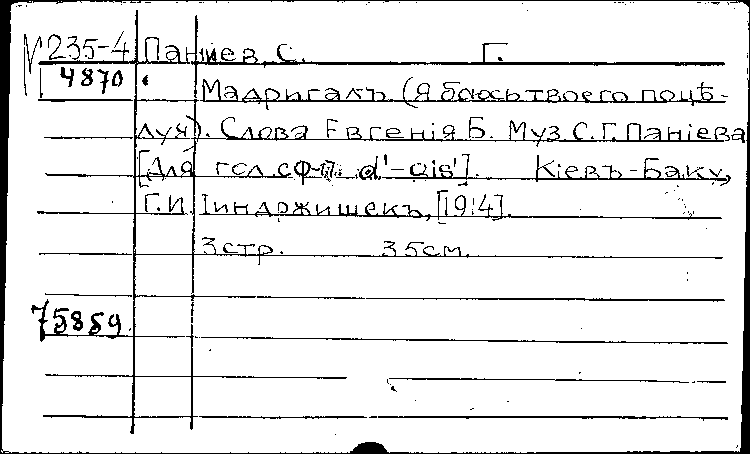 М 235-4 Паниев, С. Г.
4870
Мадригалъ. (Я боюсь твоего поцѣ-
луя). Слова Евгенія Б. Муз. С. Г. Паніева
[Для гол. с ф-п. d'-gis']. Кіевъ-Баку,
Г. И. Іиндржишекъ, [1914].
3 стр. 35 см.
75859